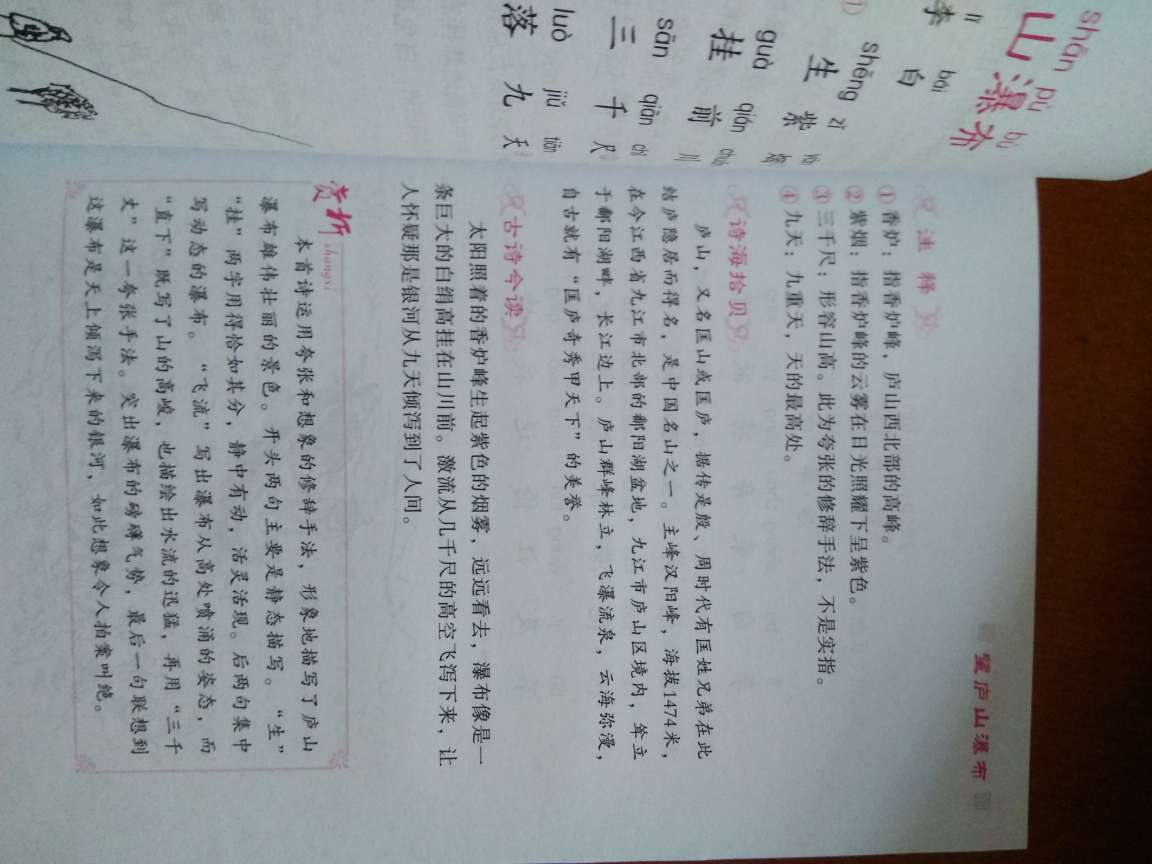 shān pù bù
山 瀑 布
lǐ bái
李 白
①
shēng zǐ
生 紫
guà qián chuān
挂 前 川
sān qiān chǐ
三 千 尺
luò jiǔ tiān
落 九 天
望庐山瀑布
注 释
①香炉：指香炉峰，庐山西北部的高峰。
②紫烟：指香炉峰的云雾在日光照耀下呈紫色。
③三千尺：形容山高。此为夸张的修辞手法，不是实指。
④九天：九重天，天的最高处。
诗海拾贝
庐山，又名匡山或匡庐，据传是殷、周时代有匡姓兄弟在此
结庐隐居而得名，是中国名山之一。主峰汉阳峰，海拔1474米，
在今江西省九江市北部的鄱阳湖盆地，九江市庐山区境内，耸立
于鄱阳湖畔，长江边上。庐山群峰林立，飞瀑流泉，云海弥漫，
自古就有“匡庐奇秀甲天下”的美誉。
古诗今读
太阳照着的香炉峰生起紫色的烟雾，远远看去，瀑布像是一
条巨大的白绢高挂在山川前。激流从几千尺的高空飞泻下来，让
人怀疑那是银河从九天倾泻到了人间。
赏析 shangxi
本首诗运用夸张和想象的修辞手法，形象地描写了庐山
瀑布雄伟壮丽的景色。开头两句主要是静态描写。“生”
“挂”两字用得恰如其分，静中有动，活灵活现。后两句集中
写动态的瀑布。“飞流”写出瀑布从高处喷涌的姿态，而
“直下”既写了山的高峻，也描绘出水流的迅猛，再用“三千
丈”这一夸张手法。突出瀑布的磅礴气势，最后一句联想到
这瀑布是天上倾泻下来的银河，如此想象令人拍案叫绝。